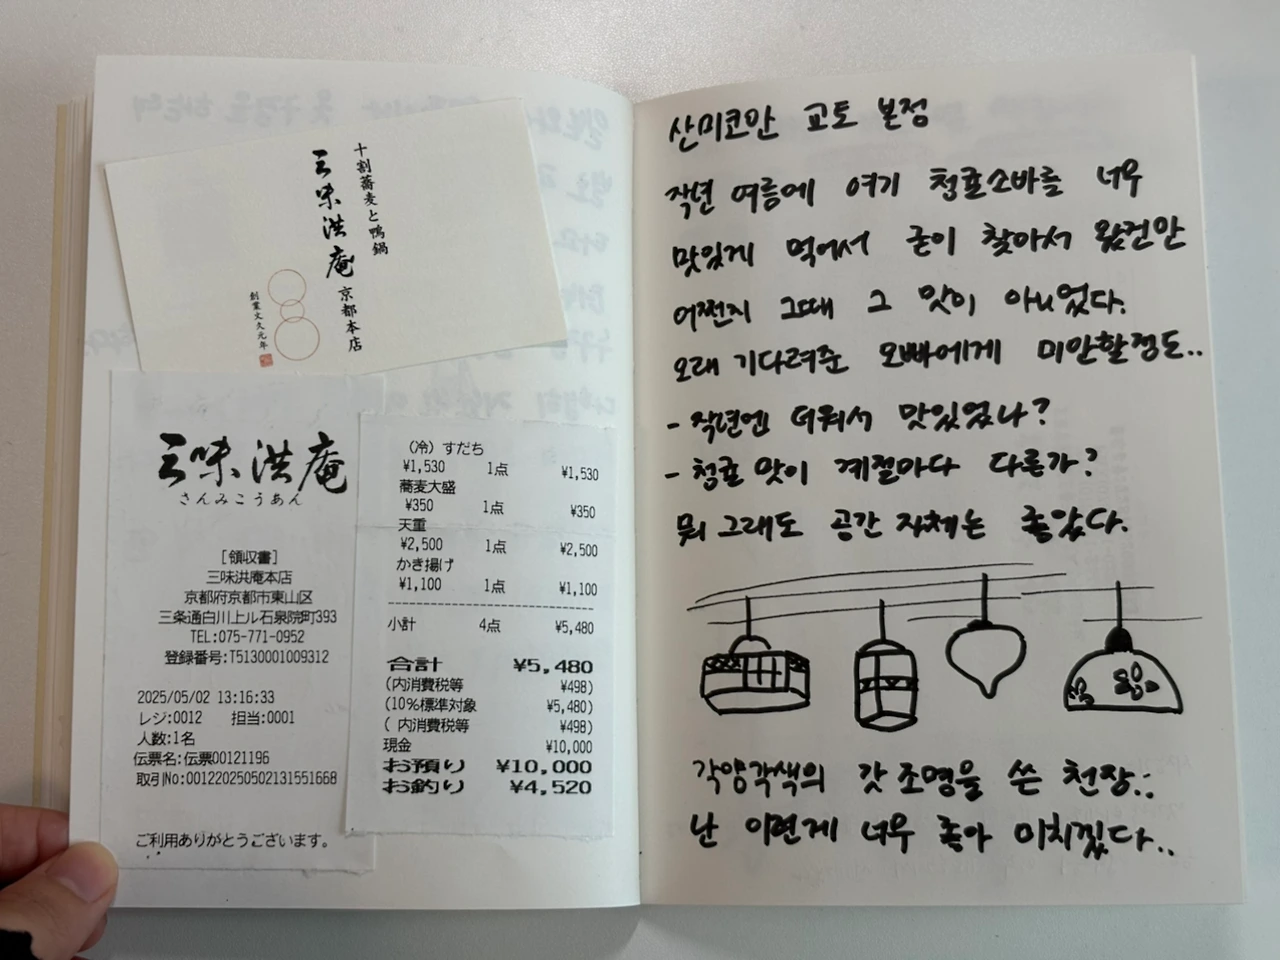 十割蕎麦と鴨鍋
三味洪庵 京都本店
創業文久元年
三味洪庵
さんみこうあん
[領収書]
三味洪庵本店
京都府京都市東山区
三条通白川上ル石泉院町393
TEL:075-771-0952
登録番号:T5130001009312
2025/05/02 13:16:33
レジ:0012 担当:0001
人数:1名
伝票名:伝票00121196
取引No:001220250502131551668
ご利用ありがとうございます。
(冷)すだち
¥1,530 1点 ¥1,530
蕎麦大盛
¥350 1点 ¥350
天重
¥2,500 1点 ¥2,500
かき揚げ
¥1,100 1点 ¥1,100
小計 4点 ¥5,480
合計 ¥5,480
(内消費税等 ¥498)
(10%標準対象 ¥5,480)
( 内消費税等 ¥498)
現金 ¥10,000
お預り ¥10,000
お釣り ¥4,520
산미코안 교토 본점
작년 여름에 여기 청귤소바를 너무
맛있게 먹어서 굳이 찾아서 왔건만
어쩐지 그때 그 맛이 아니었다.
오래 기다려준 오빠에게 미안할정도..
- 작년엔 더워서 맛있었나?
- 청귤 맛이 계절마다 다른가?
뭐 그래도 공간 자체는 좋았다.
각양각색의 갓 조명을 쓴 천장..
난 이런게 너무 좋아 미치겠다..